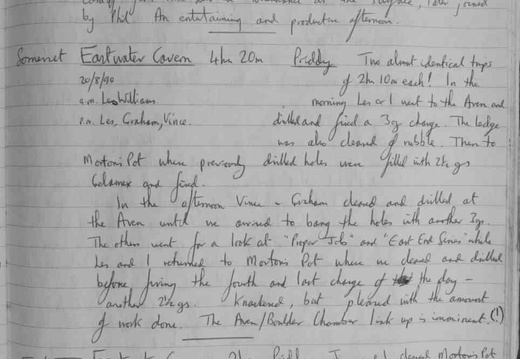 by Phil. An entertaining and productive afternoon.
Somerset Eastwater Cavern 4hr 20m Priddy Two almost identical trips
20/8/90 of 2hr 10m each! In the
a.m. Les William morning Les & I went to the Aven and
p.m. Les, Graham, Vince. drilled and fired a 3oz charge. The ledge
was also cleared of rubble. Then to
Morton's Pot where previously drilled holes were filled with 2½ ozs
and fired.
In the afternoon Vince & Graham cleared and drilled at
the Aven until we arrived to bang the holes with another 3oz.
The others went for a look at "Proper Job" and "East End Series" while
Les and I returned to Morton's Pot where we cleared and drilled
before firing the fourth and last charge of the day -
another 2½ ozs. Knackered, but pleased with the amount
of work done. The Aven/Boulder Chamber link up is imminent. (!)
Eastwater Cavern 2hr Priddy cleared Morton's Pot